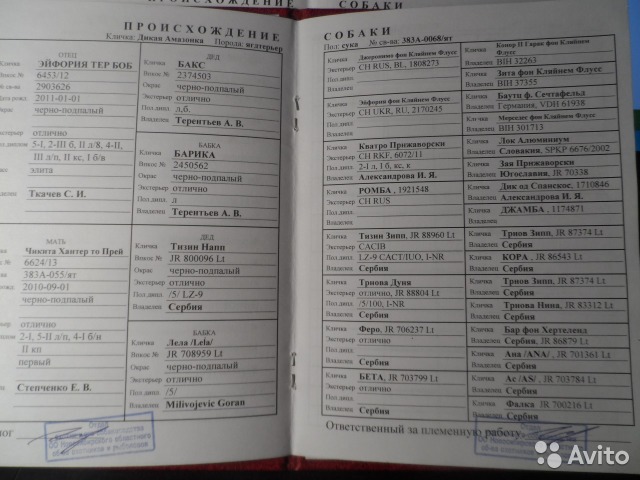 ПРОИСХОЖДЕНИЕ
Кличка: Дикая Амазонка Порода: ягдтерьер
ОТЕЦ
Кличка ЭЙФОРИЯ ТЕР БОБ
6453/12
2903626
2011-01-01
черно-подпалый
отлично
5-I, 2-III б, II л/8, 4-II,
III л/п, II кс, I б/в
элита
Ткачев С. И.
МАТЬ
Чикита Хантер го Прей
6624/13
383А-055/ят
2010-09-01
черно-подпалый
отлично
2-I, 5-II л/п, 4-I б/и
II кп
первый
Степченко Е. В.
ДЕД
Кличка БАКС
Впкос № 2374503
Окрас черно-подпалый
Экстерьер отлично
Пол.дипл. л,б.
Владелец Терентьев А. В.
БАБКА
Кличка БАРИКА
Впкос № 2450562
Окрас черно-подпалый
Экстерьер отлично
Пол.дипл. л
Владелец Терентьев А. В.
ДЕД
Кличка Тизин Напп
Впкос № JR 800096 Lt
Окрас черно-подпалый
Экстерьер отлично
Пол.дипл. /5/ LZ-9
Владелец Сербия
БАБКА
Кличка Лела /Lela/
Впкос № JR 708959 Lt
Окрас черно-подпалый
Экстерьер отлично
Пол.дипл. /5/
Владелец Milivojevic Goran
СОБАКИ
Пол: сука № св-ва: 383А-0068/ят
Кличка Джеронимо фон Кляйнем Флусс
Экстерьер CH RUS, BL, 1808273
Пол.дипл.
Владелец
Кличка Эйфория фон Кляйнем Флусс
Экстерьер CH UKR, RU, 2170245
Пол.дипл.
Владелец
Кличка Кватро Прижаворски
Экстерьер CH RKF, 6072/11
Пол.дипл. 2-I л, I б, кс, к
Владелец Александрова И. Я.
Кличка РОМБА , 1921548
Экстерьер CH RUS
Пол.дипл.
Владелец
Кличка Тизин Зипп, JR 88960 Lt
Экстерьер CACIB
Пол.дипл. LZ-9 CACT/IUO, I-NR
Владелец Сербия
Кличка Трнова Дуня
Экстерьер отлично, JR 88804 Lt
Пол.дипл. /5/100, I-NR
Владелец Сербия
Кличка Феро, JR 706237 Lt
Экстерьер отлично
Пол.дипл.
Владелец Сербия
Кличка БЕТА, JR 703799 Lt
Экстерьер отлично
Пол.дипл.
Владелец Сербия
Кличка
Владелец BIH 32263
Кличка Зита фон Кляйнем Флусс
Владелец BIH 37355
Кличка Баутц ф. Сечтафельд
Владелец Германия, VDH 61938
Кличка
Владелец BIH 301713
Кличка Лок Алюминиум
Владелец Словакия, SPKP 6676/2002
Кличка Зая Прижаворски
Владелец Югославия, JR 70338
Кличка Дик од Спанскос, 1710846
Владелец Александрова И. Я.
Кличка ДЖАМБА , 1174871
Владелец
Кличка Трнов Зипп, JR 87374 Lt
Владелец Сербия
Кличка КОРА , JR 86543 Lt
Владелец Сербия
Кличка Трнов Зипп, JR 87374 Lt
Владелец Сербия
Кличка Трнова Нина, JR 83312 Lt
Владелец Сербия
Кличка Бар фон Хертеленд
Владелец Сербия, JR 86879 Lt
Кличка Ана /ANA/ , JR 701361 Lt
Владелец Сербия
Кличка Ас /AS/ , JR 703784 Lt
Владелец Сербия
Кличка Фалка JR 700216 Lt
Владелец Сербия
Ответственный за племенную работу
Avito